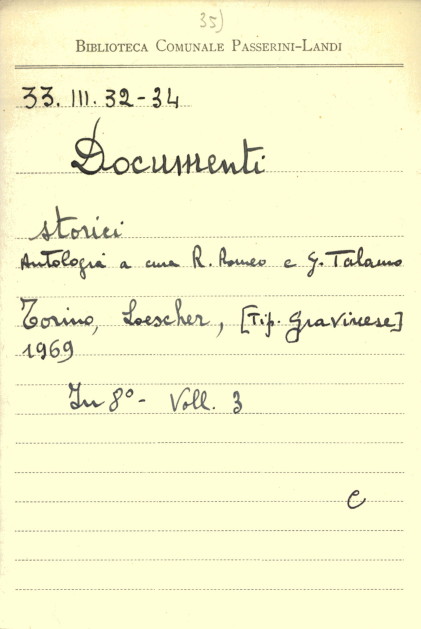 35)
BIBLIOTECA COMUNALE PASSERINI-LANDI
33. III. 32-34
Documenti
storici
Antologia a cura R. Romeo e G. Talamo
Torino, Loescher, [Tip. Gravinese]
1969
In 8° - Voll. 3
C